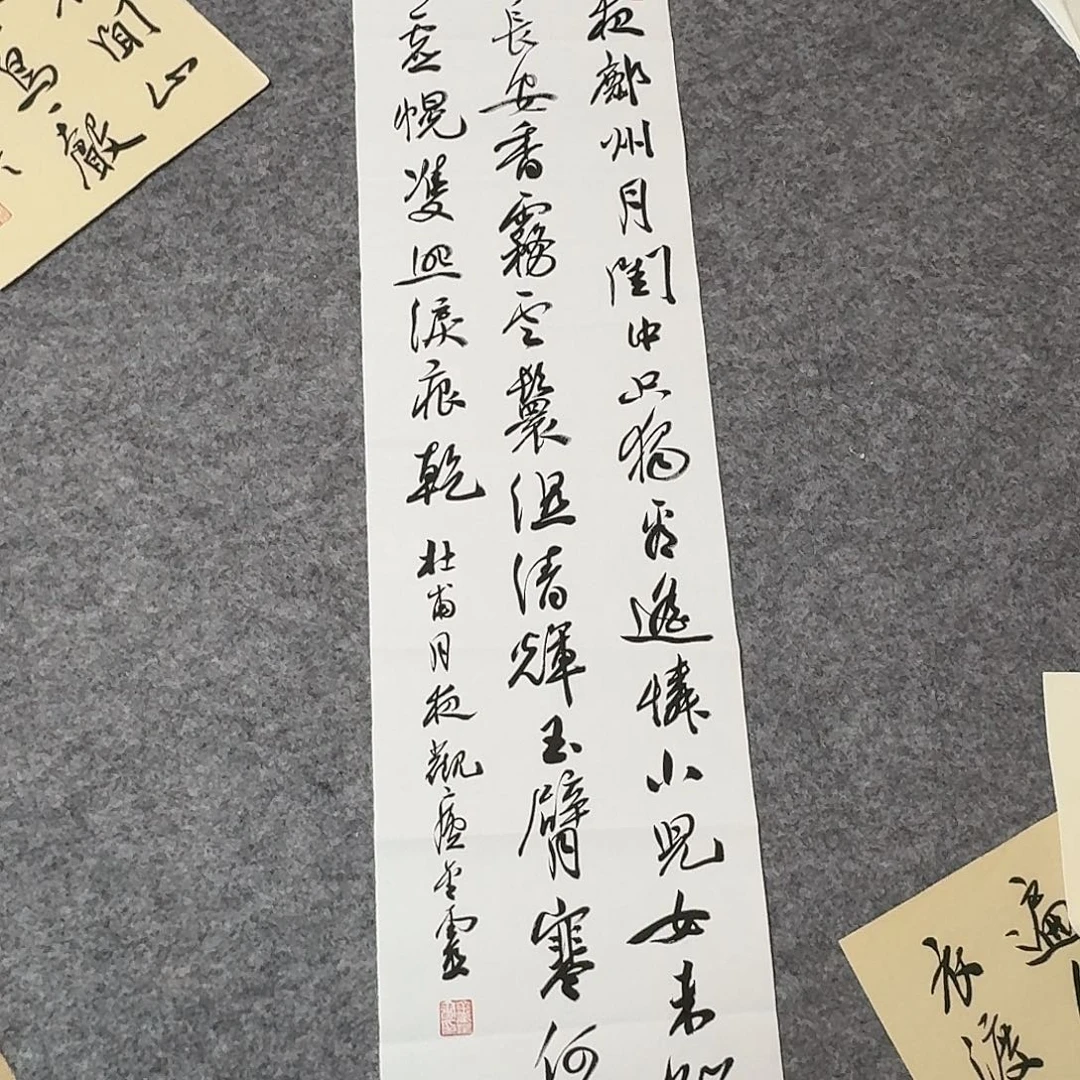 夜鄜州月閨中只獨看遙憐小兒女未解
長安香霧云鬟溼清輝玉臂寒何
虛幌雙照淚痕乾 杜甫月夜觀
山
遍
存渡